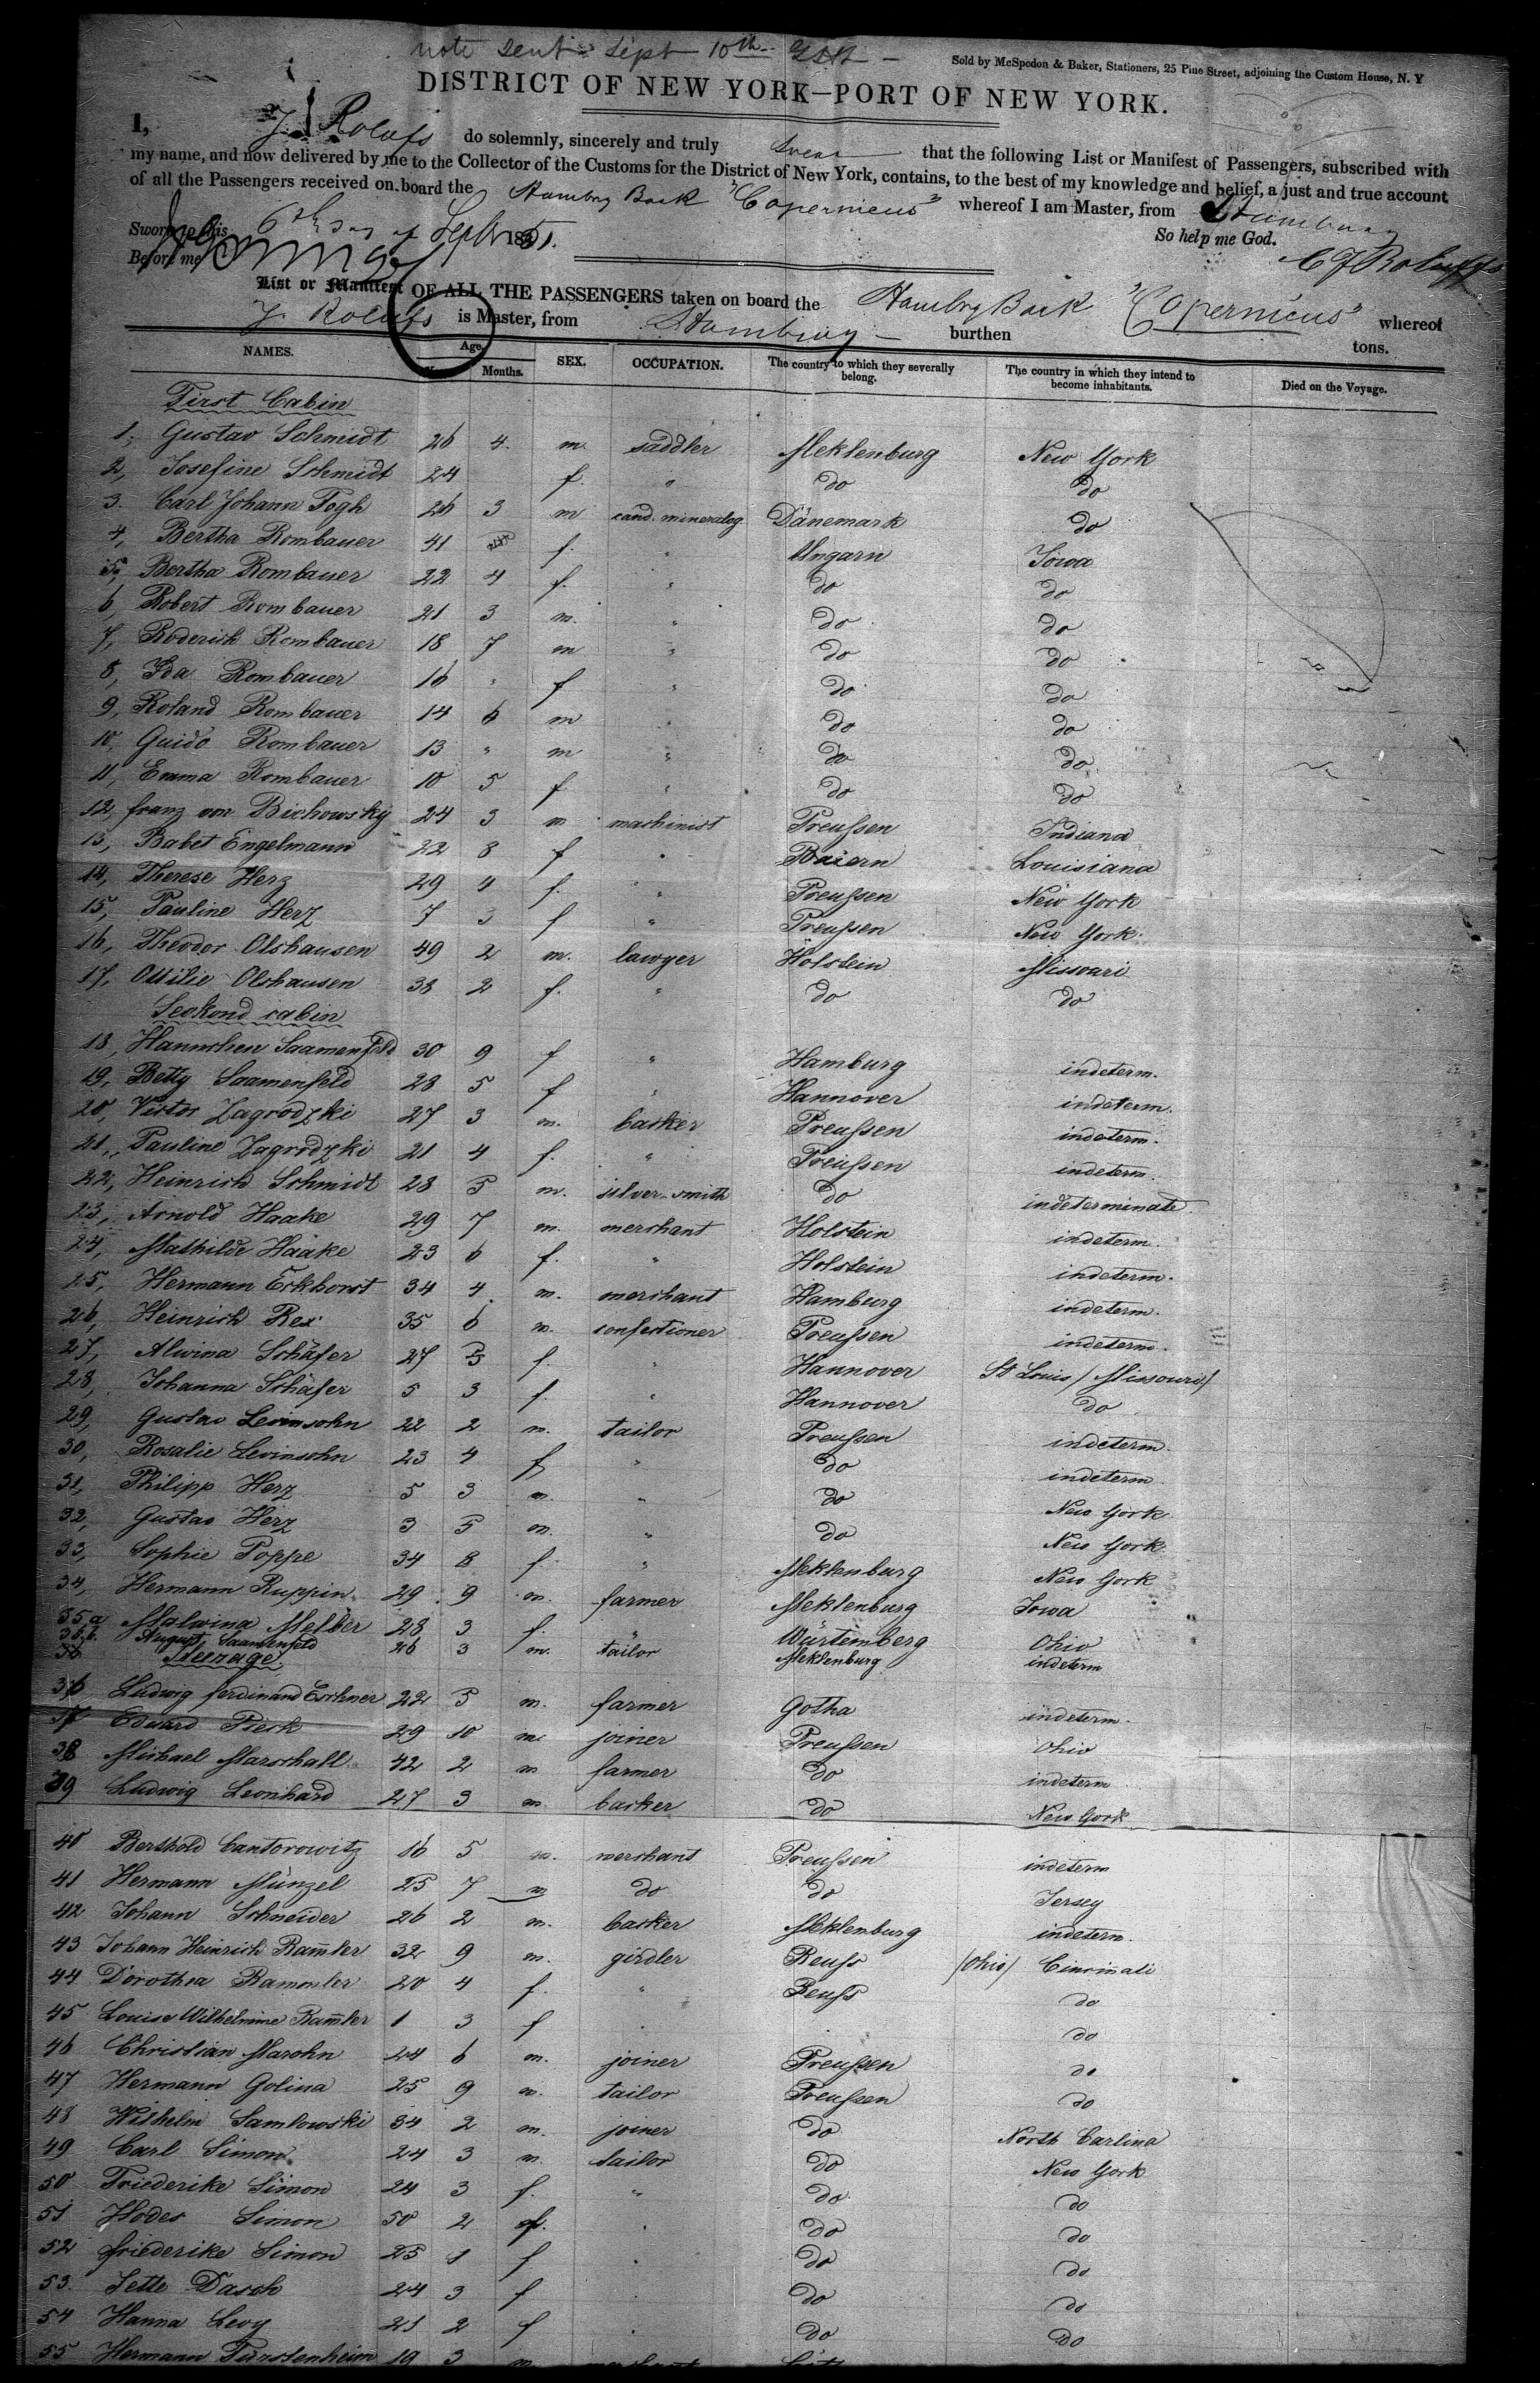 note sent Sept 10th
Sold by McSpedon & Baker, Stationers, 25 Pine Street, adjoining the Custom House, N. Y
DISTRICT OF NEW YORK—PORT OF NEW YORK.
I, J. Rolufs do solemnly, sincerely and truly swear that the following List or Manifest of Passengers, subscribed with
my name, and now delivered by me to the Collector of the Customs for the District of New York, contains, to the best of my knowledge and belief, a just and true account
of all the Passengers received on board the Hambrg Bark "Copernicus" whereof I am Master, from Hamburg
Sworn to this 6th day of Septbr 1851. So help me God.
Before me
List or Manifest OF ALL THE PASSENGERS taken on board the Hambrg Bark "Copernicus" whereof
J. Rolufs is Master, from Hamburg burthen tons.
NAMES. Age. Months. SEX. OCCUPATION. The country to which they severally belong. The country in which they intend to become inhabitants. Died on the Voyage.
First Cabin
1, Gustav Schmidt 26 4. m saddler Meklenburg New York
2, Josefine Schmidt 24 f. " do do
3. Carl Johann Fogh 26 3 m cand. mineralog Dänemark do
4, Bertha Rombauer 41 f. " Ungarn Iowa
5, Bertha Rombauer 22 4 f. " do do
6, Robert Rombauer 21 3 m. " do do
7, Roderich Rombauer 18 7 m " do do
8, Ida Rombauer 16 " f " do do
9, Roland Rombauer 14 6 m " do do
10, Guido Rombauer 13 " m " do do
11, Emma Rombauer 10 5 f " do do
12, franz von Bichowsky 24 3 m machinist Preußen Indiana
13, Babet Engelmann 22 8 f " Baiern Louisiana
14, Therese Herz 29 4 f. " Preußen New York
15, Pauline Herz 7 3 f " Preußen New York.
16, Theodor Olshausen 49 2 m. lawyer Holstein Missouri
17, Ottilie Olshausen 38 2 f. " do do
Seckond cabin
18, Hannchen Saamenfeld 30 9 f " Hamburg indeterm.
19, Betty Saamenfeld 28 5 f " Hannover indeterm.
20, Victor Zagrodzki 27 3 m. backer Preußen indeterm.
21, Pauline Zagrodzki 21 4 f. " Preußen indeterm.
22, Heinrich Schmidt 28 5 m. silver-smith do indeterminate.
23, Arnold Haake 29 7 m. merchant Holstein indeterm.
24, Mathilde Haake 23 6 f. " Holstein indeterm.
25, Hermann Eckhorst 34 4 m. merchant Hamburg indeterm.
26, Heinrich Rex 35 6 m. confectioner Preußen indeterm.
27, Alwina Schäfer 27 5 f. " Hannover St Louis /Missouri/
28, Johanna Schäfer 5 3 f. " Hannover do
29, Gustav Levinsohn 22 2 m. tailor Preußen indeterm.
30, Rosalie Levinsohn 23 4 f " do indeterm
31, Philipp Herz 5 3 m. " do New York.
32, Gustav Herz 3 5 m. " do New York.
33, Sophie Poppe 34 8 f. " Meklenburg New York
34, Hermann Ruppin 29 9 m. farmer Meklenburg Iowa
35.a Malwina Melber 28 3 f. " Würtemberg Ohio
35.b. August Saamenfeld 26 3 m. tailor Meklenburg indeterm
Steerage.
36 Ludwig ferdinand Eschner 22 5 m. farmer Gotha indeterm.
37 Eduard Pieck 29 10 m. joiner Preußen Ohio
38 Michael Marschall 42 2 m farmer do indeterm
39 Ludwig Leonhard 27 3 m backer do New York
40 Berthold Cantorowitz 16 5 m. merchant Preußen indeterm
41 Hermann Münzel 25 7 m do do Jersey
42 Johann Schneider 26 2 m. backer Meklenburg indeterm.
43 Johann Heinrich Ram̄ler 32 9 m. girdler Reuß /Ohio/ Cincinati
44 Dorothea Rammler 20 4 f. " Reuß do
45 Louise Wilhelmine Ram̄ler 1 3 f do
46 Christian Marohn 24 6 m. joiner Preußen do
47 Hermann Golina 25 9 m. tailor Preußen do
48 Wilhelm Samlowski 34 2 m. joiner do North Carlina
49 Carl Simon 24 3 m. tailor do New York
50 Friederike Simon 24 3 f. " do do
51 Hodes Simon 50 2 f. do do
52 friederike Simon 25 1 f do do
53. Jette Dasch 24 3 f do do
54 Hanna Levy 21 2 f do do
55 Hermann Fürstenheim 19 3 m.